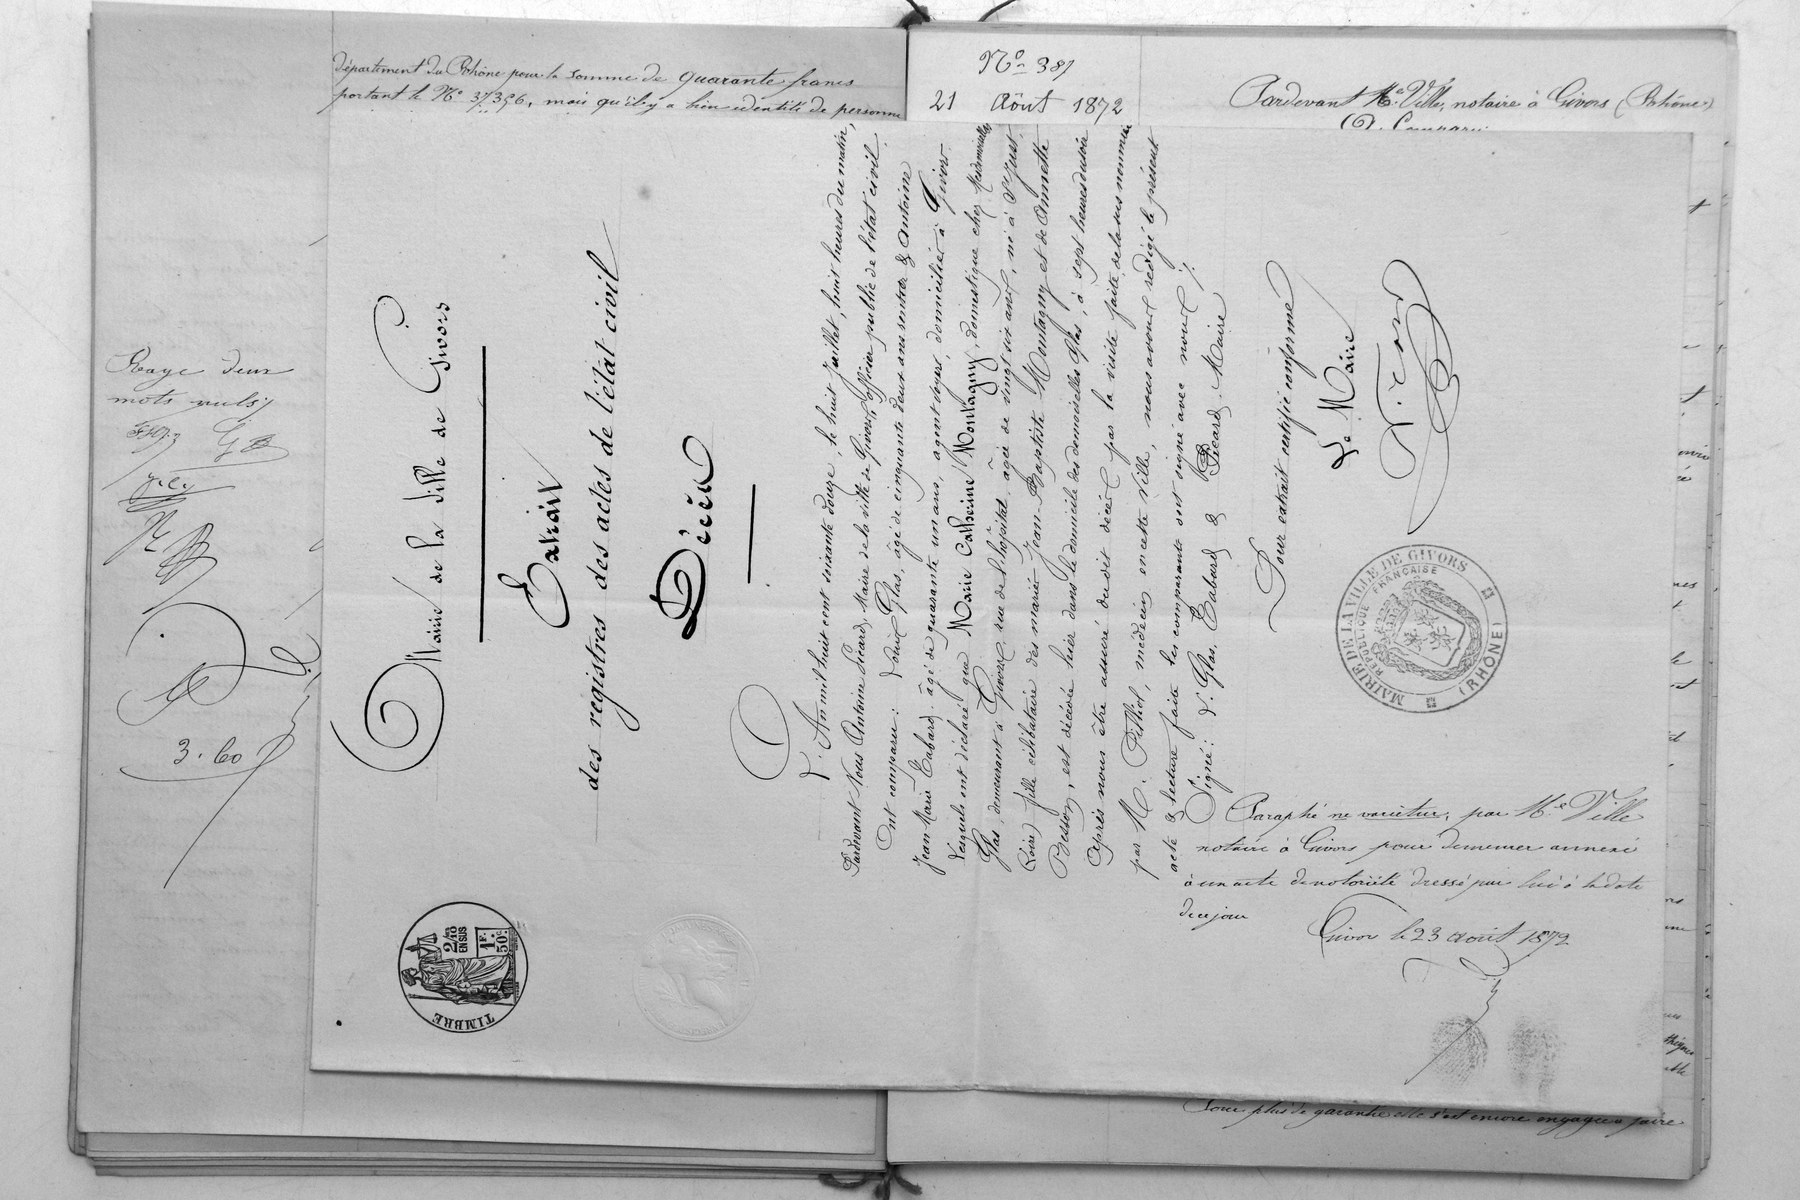 département du Rhône pour la somme de quarante francs
portant le N° 37356, mais qu'il y a bien identité de personne
Rayé deux
mots nuls
3.60
N° 381
21 Août 1872
Pardevant Me Ville, notaire à Givors (Rhône)
Mairie de la Ville de Givors
Extrait
des registres des actes de l'état civil
Décès
L'An mil huit cent soixante douze, le huit Juillet, huit heures du matin,
Pardevant Nous Antoine Picard, Maire de la ville de Givors, officier public de l'état civil.
Ont comparu : Louis Glas, âgé de cinquante deux ans rentier & Antoine
Jean Marie Eabard âgé de quarante un ans, agent voyer, domiciliés à Givors
lesquels ont déclaré que Marie Catherine Montagny, domestique chez Mesdemoiselles
Glas demeurant à Givors rue de l'hôpital âgée de vingt six ans, née à St Just
(Loire) fille célibataire des mariés Jean-Baptiste Montagny et de Annette
Besson, est décédée hier dans le domicile des demoiselles Glas, à sept heures du soir
Après nous être assuré dudit décès par la visite faite de la susnommée
par M. Filliol, médecin en cette ville, nous avons rédigé le présent
acte & lecture faite les comparants ont signé avec nous ./.
Signé : L. Glas, Eabard & Picard, Maire
Pour extrait certifié conforme
Le Maire
Picard
MAIRIE DE LA VILLE DE GIVORS
RÉPUBLIQUE FRANÇAISE
(RHÔNE)
2/10
EN SUS
1F.
50c.
TIMBRE
Paraphé ne varietur, par Me Ville
notaire à Givors pour demeurer annexé
à un acte de notoriété dressé par lui à la date
de ce jour
Givors le 23 août 1872
Pour plus de garantie elle s'est encore engagée à faire